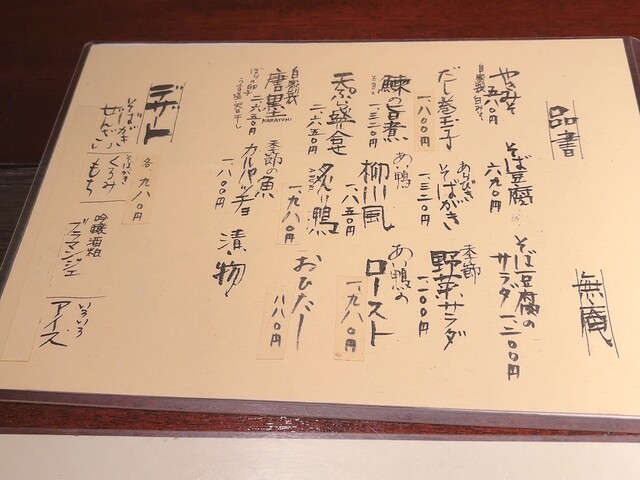 無庵
品書
やきみそ
五八〇円
自家製
そば豆腐
六九〇円
そば豆腐の
サラダ 一、二〇〇円
だし巻玉子
一、八〇〇円
あらびき
そばがき
一、三二〇円
季節
野菜サラダ
一、二〇〇円
鰊の旨煮
一、三二〇円
あい鴨
柳川風
一、八五〇円
あい鴨の
ロースト
一、九八〇円
天ぷら盛合
二、六五〇円
炙り鴨
ABURI
一、九八〇円
おひたし
八八〇円
自家製
唐墨
KARASUMI
二、六五〇円
ぼらの卵
季節の魚
カルパッチョ
一、八〇〇円
漬物
デザート
各九八〇円
そばがき
ぜんざい
そばがき
くるみ
もち
吟醸酒粕
ブラマンジェ
いろいろ
アイス